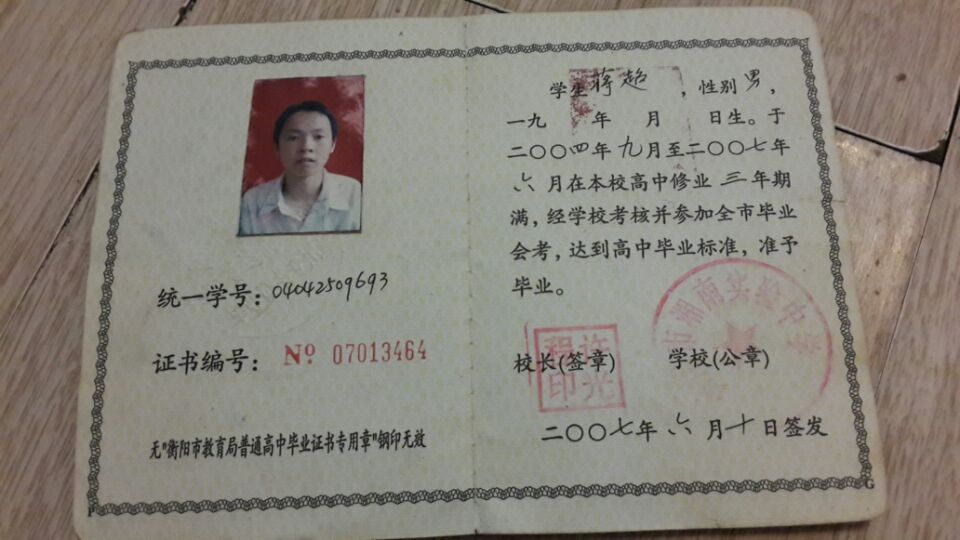 统一学号：04042509693
证书编号： Nº 07013464
无"衡阳市教育局普通高中毕业证书专用章"钢印无效
学生蒋超，性别男，
一九 年 月 日生。于
二〇〇四年九月至二〇〇七年
六月在本校高中修业三年期
满，经学校考核并参加全市毕业
会考，达到高中毕业标准，准予
毕业。
市湖南实验中学
程许
印光
校长(签章) 学校(公章)
二〇〇七年六月十日签发